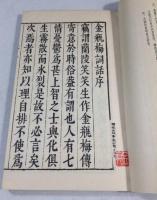 金瓶梅詞話序
竊謂蘭陵笑笑生作金瓶梅傳
寄意於時俗蓋有謂也人有七
情憂鬱為甚上智之士與化俱
生霧散而冰裂是故不必言矣
次焉者亦知以理自排不使為